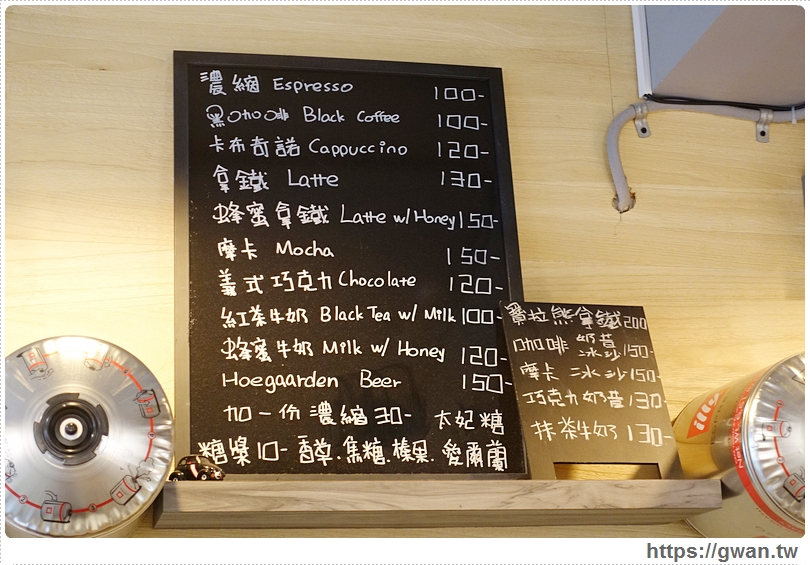 濃縮 Espresso 100-
黑咖啡 Black Coffee 100-
卡布奇諾 Cappuccino 120-
拿鐵 Latte 130-
蜂蜜拿鐵 Latte w/ Honey 150-
摩卡 Mocha 150-
義式巧克力 Chocolate 120-
紅茶牛奶 Black Tea w/ Milk 100-
蜂蜜牛奶 Milk w/ Honey 120-
Hoegaarden Beer 150-
加一份濃縮30- 太妃糖
糖漿10- 香草.焦糖.榛果.愛爾蘭
拉熊拿鐵 200
咖啡 奶昔 冰沙 150-
摩卡 冰沙 150-
巧克力奶昔 130-
抹茶牛奶 130-
illy
https://gwan.tw